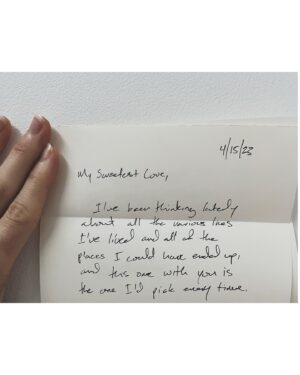 4/15/23
My Sweetest Love,
I've been thinking lately
about all the various lives
I've lived and all of the
places I could have ended up,
and this one with you is
the one I'd pick every time.